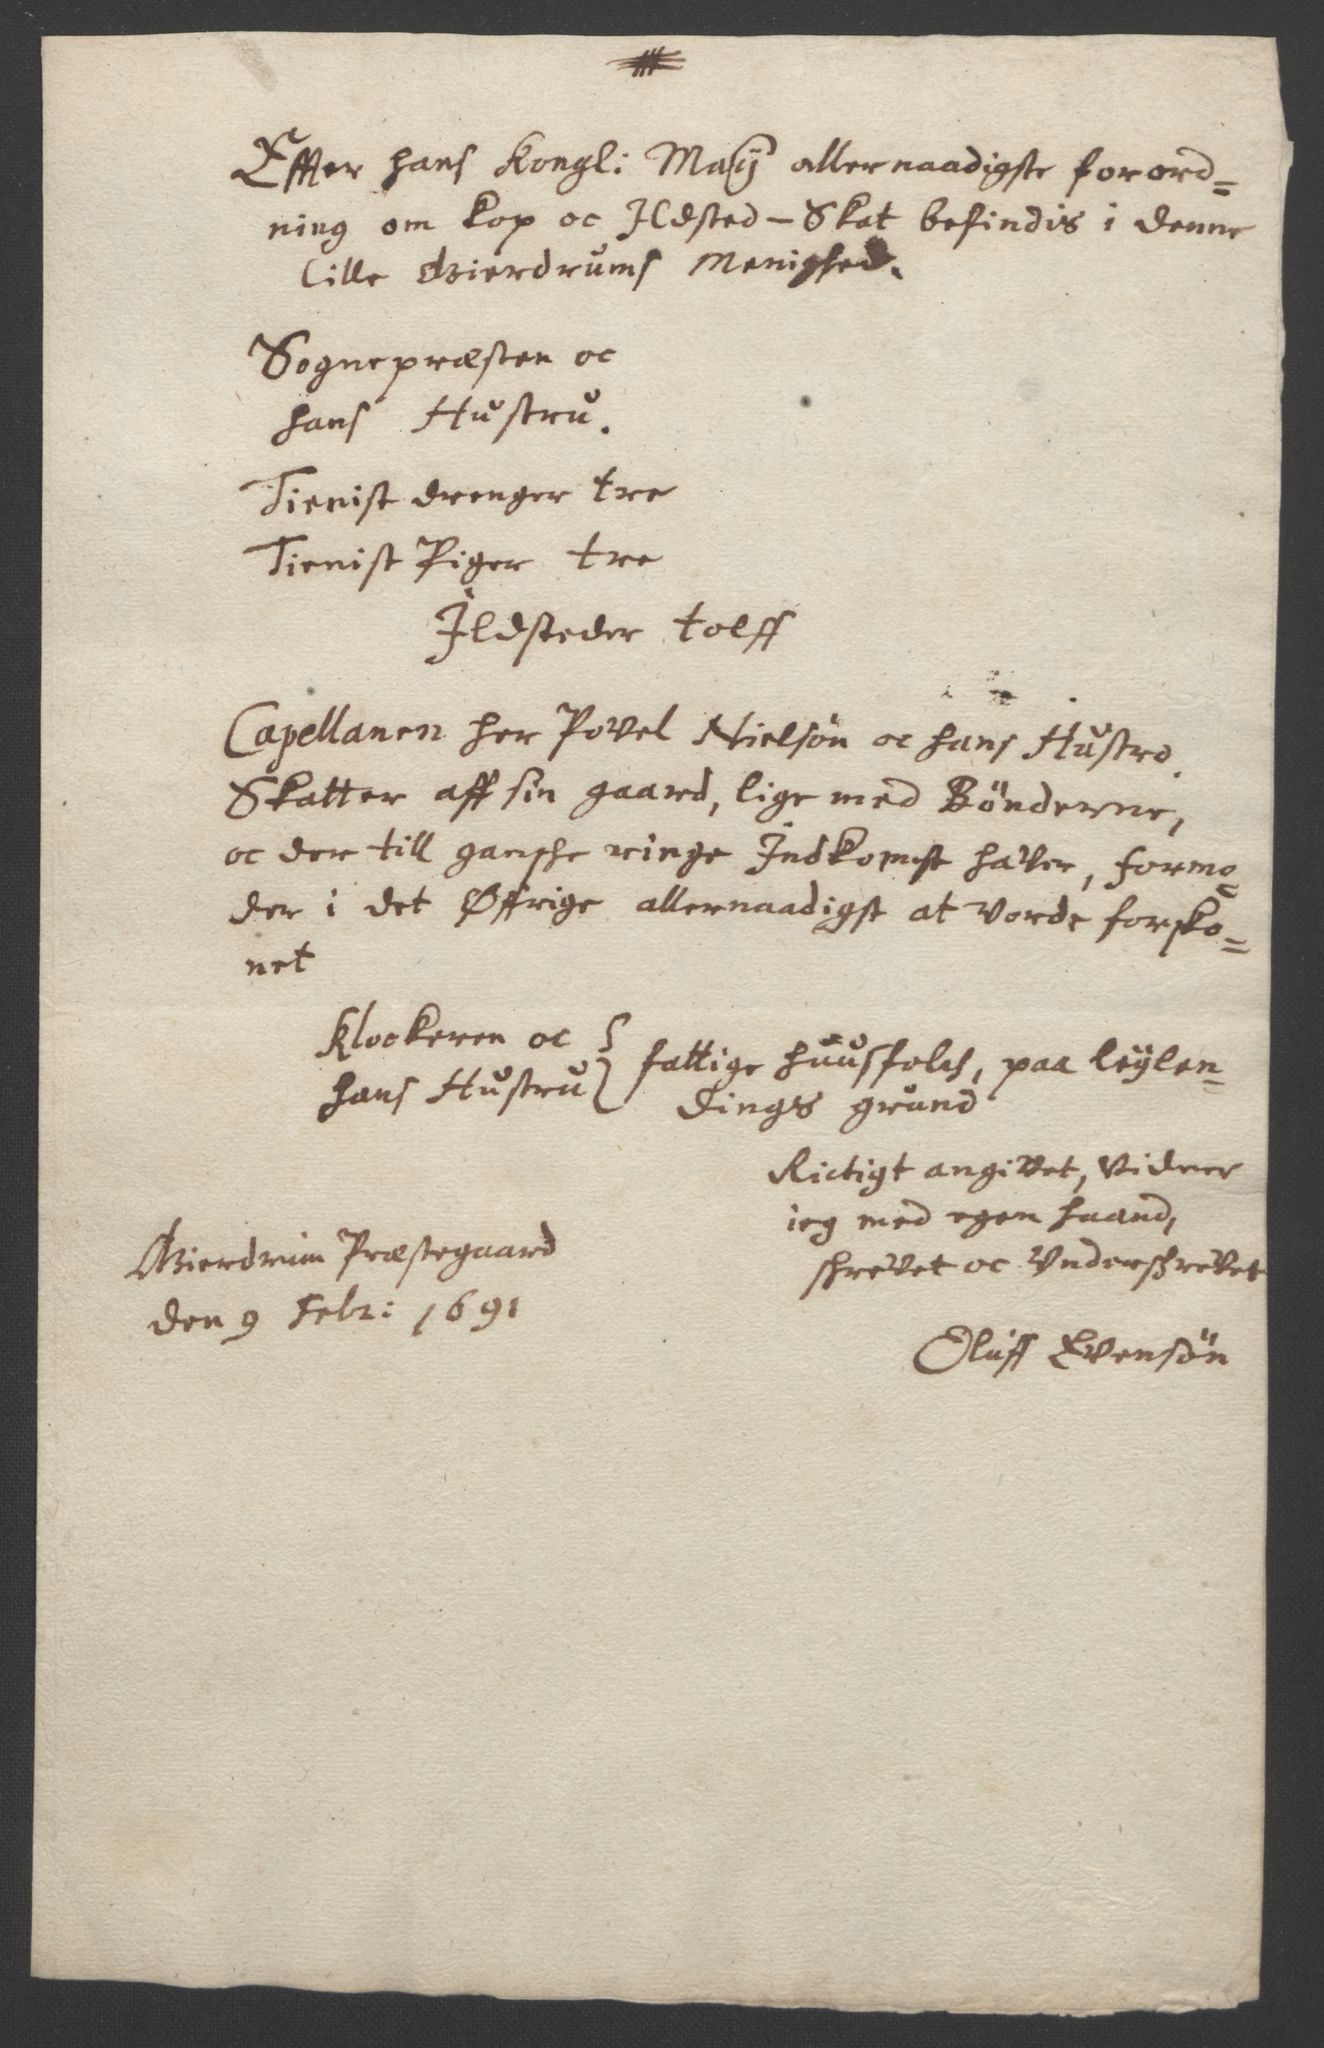 Effter hans Kongl: May allernaadigste forord=
ning om kop oc Ildsted-Skat befindis i denne
lille Gierdrums Menighed.
Sognepræsten oc
hans Hustru.
Tienist drenger tre
Tienist Piger tre
Ildsteder tolff
Capellanen her Povel Nielsön oc hans Hustro.
Skatter aff sin gaard, lige med Bönderne,
oc der till gansche ringe Indkomst haver, formo=
der i det Øffrige allernaadigst at vorde forsko=
net
Klockeren oc
hans Hustru } fattige huusfolch, paa leÿlen=
dings grund
Rictigt angivet, vidner
ieg med egen haand,
schrevet oc Underschrevet
Gierdrum Præstegaard
den 9 Febr: 1691
Oluff Evensön